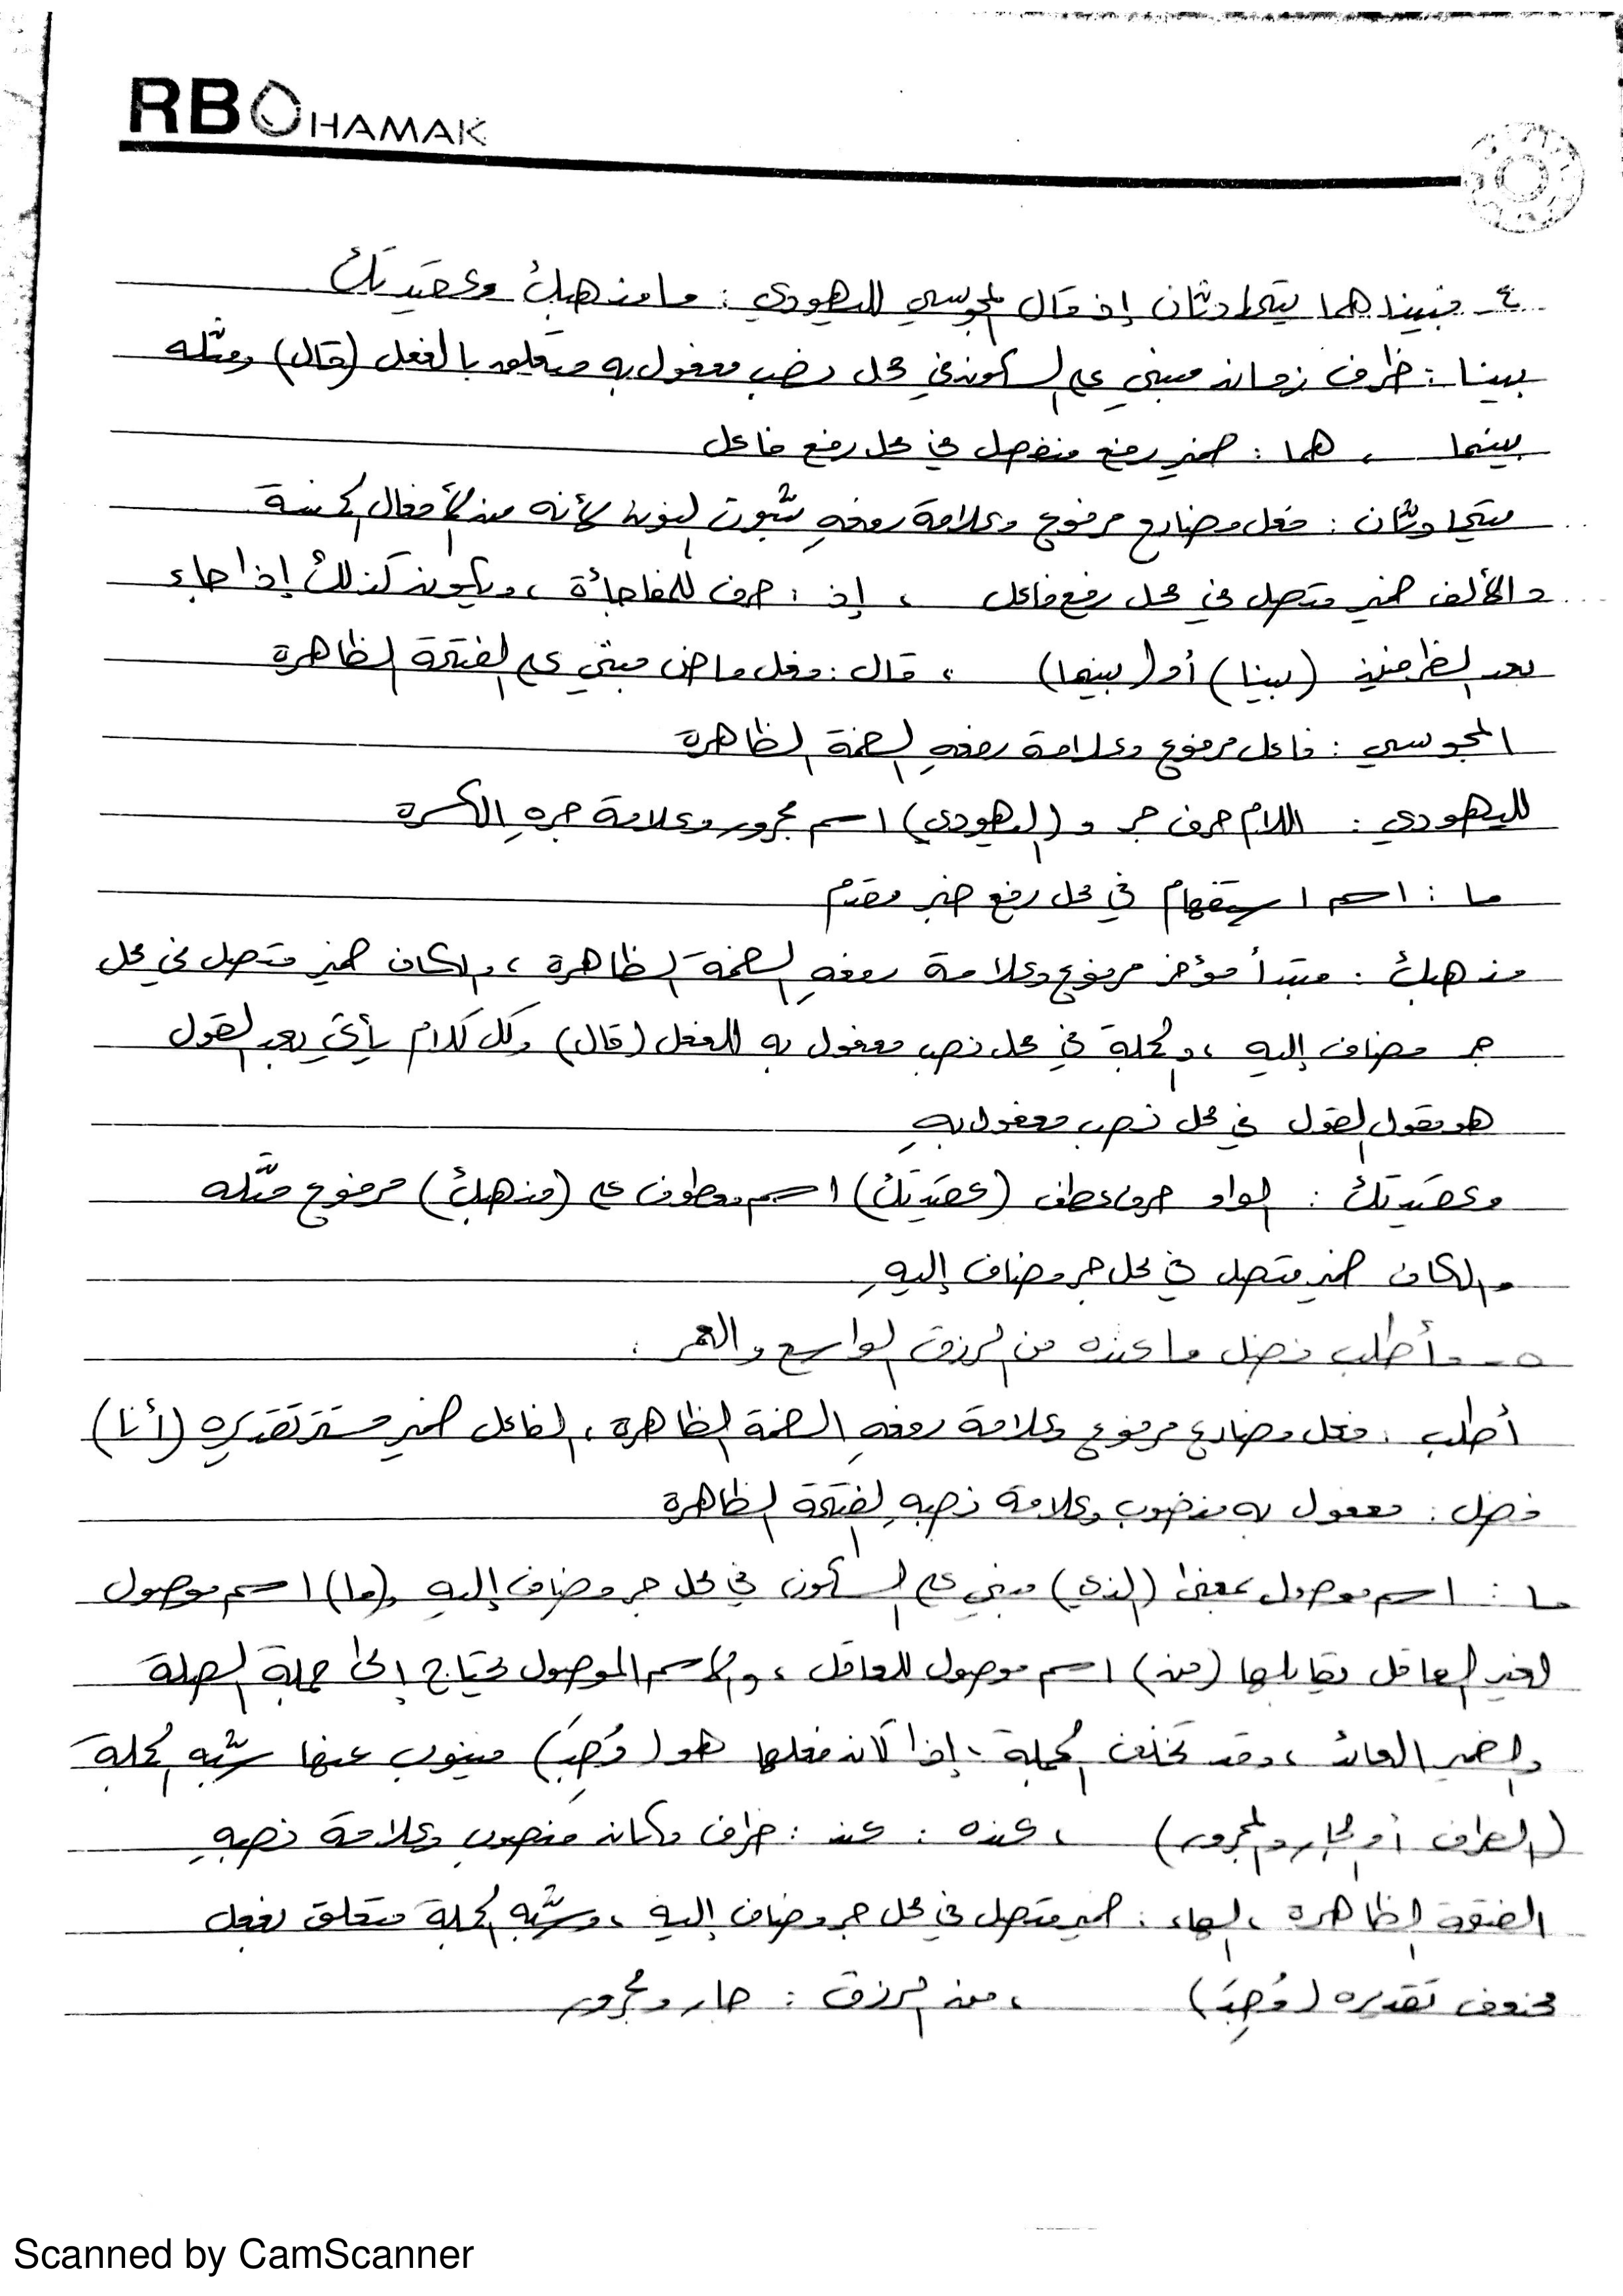 RBOHAMAK
٤- فبينا هما يتحادثان إذ قال المجوسي لليهودي : ما مذهبكَ وعقيدتكَ
بينا : ظرف زمان مبني على السكون في محل نصب مفعول به متعلق بالفعل (قال) ومثله
بينما ، هما : ضمير رفع منفصل في محل رفع فاعل
يتحادثان : فعل مضارع مرفوع وعلامة رفعهِ ثبوت النون لأنه من الأفعال الخمسة
والألف ضمير متصل في محل رفع فاعل ، إذ : حرف للمفاجأة ، ويكون كذلك إذا جاء
بعد الظرفين (بينا) أو (بينما) ، قال : فعل ماضٍ مبني على الفتحة الظاهرة
المجوسي : فاعل مرفوع وعلامة رفعهِ الضمة الظاهرة
لليهودي : اللام حرف جر و (اليهودي) اسم مجرور وعلامة جرهِ الكسرة
ما : اسم استفهام في محل رفع خبر مقدم
مذهبكَ : مبتدأ مؤخر مرفوع وعلامة رفعهِ الضمة الظاهرة ، والكاف ضمير متصل في محل
جر مضاف إليه ، والجملة في محل نصب مفعول به للفعل (قال) وكل كلام يأتي بعد القول
هو مقول القول في محل نصب مفعول بهِ
وعقيدتكَ : الواو حرف عطف (عقيدتكَ) اسم معطوف على (مذهبكَ) مرفوع مثله
والكاف ضمير متصل في محل جر مضاف إليهِ
٥- وأطلب فضل ما عنده من الرزق الواسع والعمر :
أطلب : فعل مضارع مرفوع وعلامة رفعهِ الضمة الظاهرة ، الفاعل ضمير مستتر تقديره (أنا)
فضل : مفعول به منصوب وعلامة نصبهِ الفتحة الظاهرة
ما : اسم موصول بمعنى (الذي) مبني على السكون في محل جر مضاف إليه و(ما) اسم موصول
لغير العاقل يقابلها (من) اسم موصول للعاقل ، والاسم الموصول يحتاج إلى جملة الصلة
والضمير العائد ، وقد تحذف الجملة ، إذا كان فعلها هو (وُجِدَ) فينوب عنها شبه الجملة
(الظرف أو الجار والمجرور) ، عنده : عند : ظرف مكان منصوب وعلامة نصبهِ
الفتحة الظاهرة ، الهاء : ضمير متصل في محل جر مضاف إليه ، وشبه الجملة متعلق بفعل
محذوف تقديره (وُجِدَ) ، من الرزق : جار ومجرور
Scanned by CamScanner